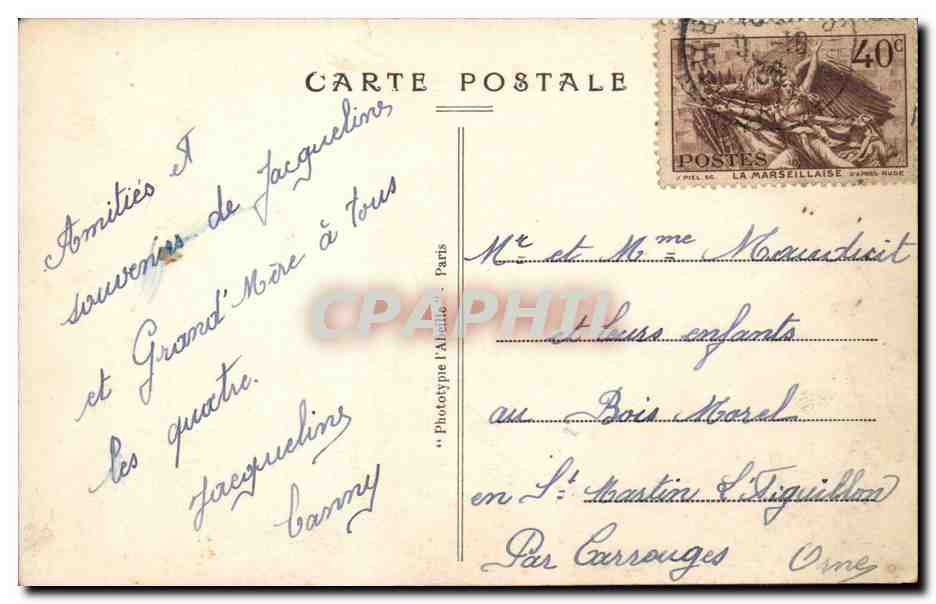 CARTE POSTALE
40c
POSTES
J. PIEL SC. LA MARSEILLAISE D'APRÈS RUDE
Amitiés et
souvenirs de Jacqueline
et Grand'Mère à tous
les quatre.
Jacqueline
Canny
"Phototypie l'Abeille" - Paris
CPAPHIL
Mr et Mme Mauduit
et leurs enfants
au Bois Morel
en St Martin L'Aiguillon
Par Carrouges Orne